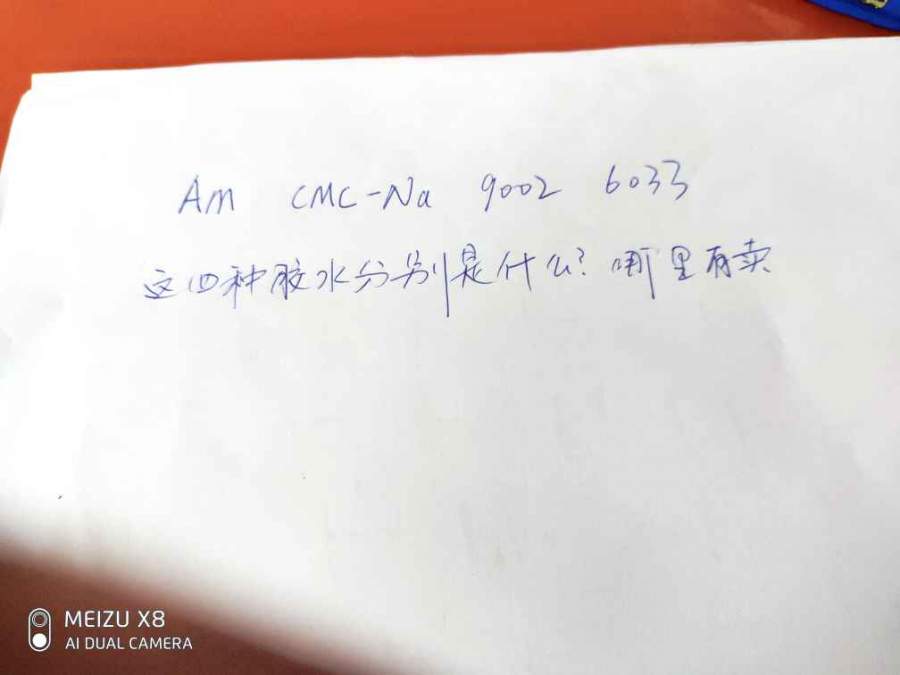 Am CMC-Na 9002 6033
这四种胶水分别是什么？哪里有卖
MEIZU X8
AI DUAL CAMERA